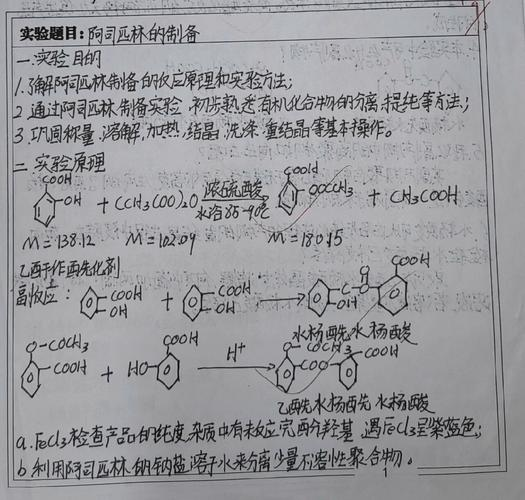 实验题目:阿司匹林的制备
一.实验目的
1.了解阿司匹林制备的反应原理和实验方法;
2.通过阿司匹林制备实验,初步熟悉有机化合物的分离、提纯等方法;
3.巩固称量、溶解、加热、结晶、洗涤、重结晶等基本操作。
二.实验原理
COOH
OH + (CH3CO)2O 浓硫酸 水浴85-90℃ COOH OOCCH3 + CH3COOH
M=138.12 M=102.09 M=180.15
乙酰作酰化剂
副反应: COOH OH + COOH OH → C O OH O COOH
水杨酰水杨酸
O-COCH3 COOH + HO COOH H+ O COCH3 COO COOH
乙酰水杨酰水杨酸
a.FeCl3检查产品的纯度,杂质中有未反应完酚羟基,遇FeCl3呈紫蓝色;
b.利用阿司匹林的钠盐溶于水来分离少量不溶性聚合物。
1